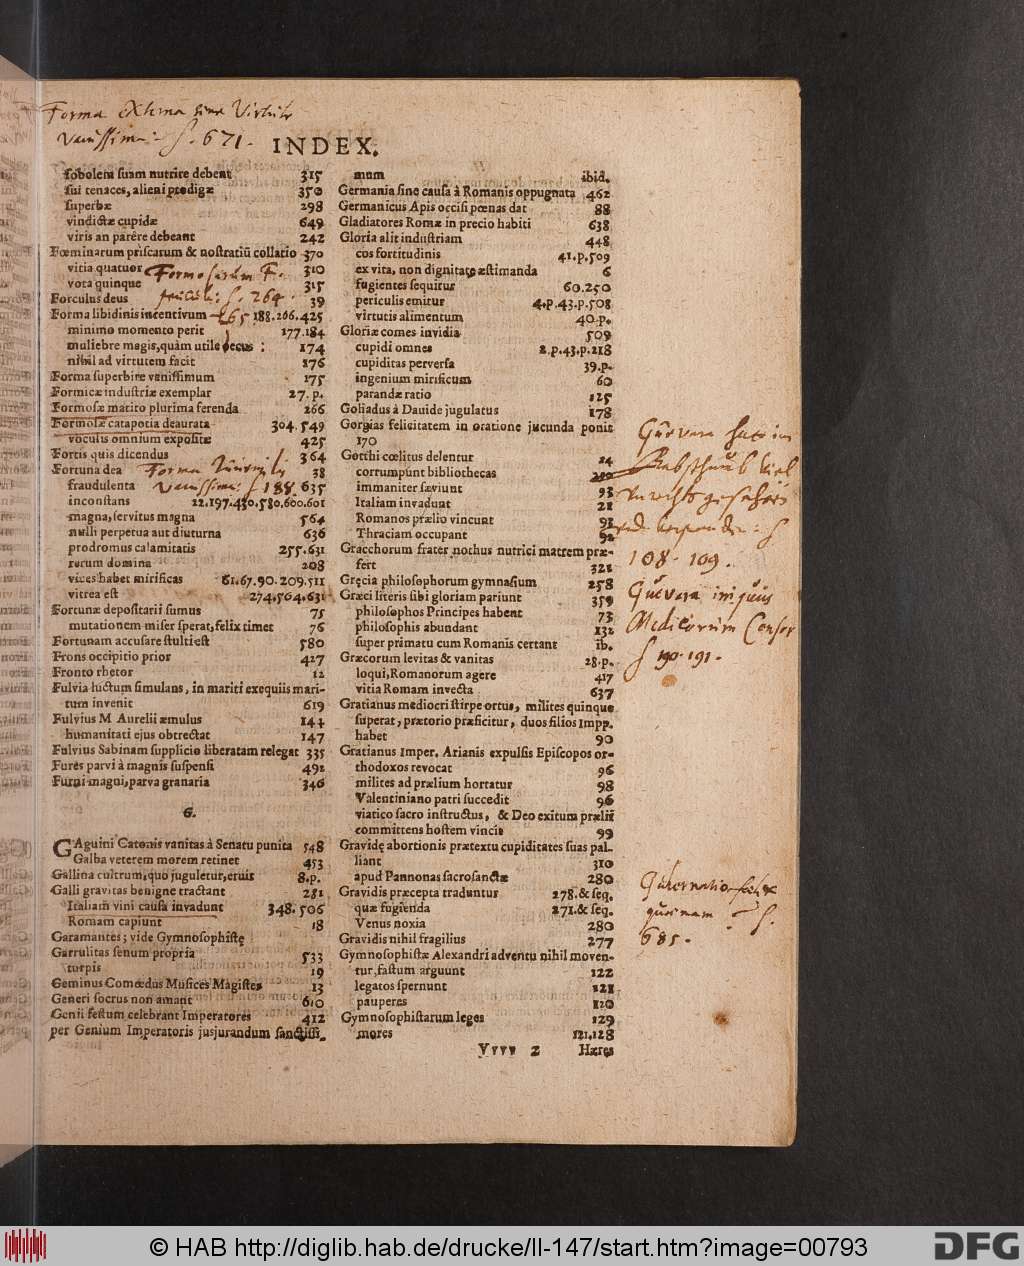 Forma externa sine Virtute
vanissima: f. 671.
INDEX.
ſobolem ſuam nutrire debent 315
ſui tenaces, alieni prodigæ 350
ſuperbæ 298
vindictæ cupidæ 649
viris an parére debeant 242
Fœminarum priſcarum & noſtratiũ collatio 370
vitia quatuor 310
Formosarum F.
vota quinque 315
Forculus deus 39
pericula: f. 264.
Forma libidinis incentivum 165 188.266.425
minimo momento perit 177.184
muliebre magis, quàm utile decus : 174
nihil ad virtutem facit 176
Forma ſuperbire vaniſſimum 175
Formicæ induſtriæ exemplar 27. p.
Formoſæ marito plurima ferenda 266
Formoſæ catapotia deaurata 304.549
voculis omnium expoſitæ 425
Fortis quis dicendus 364
Fortuna dea 38
Forma
fraudulenta 635
vanissima: f 188.
inconſtans 22.197.430.580.600.601
magna, ſervitus magna 564
nulli perpetua aut diuturna 636
prodromus calamitatis 255.631
rerum domina 208
vices habet mirificas 61.67.90.209.511
vitrea eſt 274.564.631
Fortunæ depoſitarii ſumus 75
mutationem miſer ſperat, felix timet 76
Fortunam accuſare ſtulti eſt 580
Frons occipitio prior 427
Fronto rhetor 12
Fulvia luctum ſimulans, in mariti exequiis mari-
tum invenit 619
Fulvius M Aurelii æmulus 144
humanitati ejus obtrectat 147
Fulvius Sabinam ſupplicio liberatam relegat 335
Fures parvi à magnis ſuſpenſi 492
Furni magni, parva granaria 346
G.
GAguini Catonis vanitas à Senatu punita 548
Galba veterem morem retinet 453
Gallina cultrum, quo juguletur, eruit 8.p.
Galli gravitas benigne tractant 281
Italiam vini cauſa invadunt 348.506
Romam capiunt 18
Garamantes; vide Gymnoſophiſtę
Garrulitas ſenum propria 533
turpis 19
Geminus Comœdus Muſices Magiſter 13
Generi ſocrus non amant 610
Genii feſtum celebrant Imperatores 412
per Genium Imperatoris jusjurandum ſanctiſſi-
mum ibid.
Germania ſine cauſa à Romanis oppugnata 462
Germanicus Apis occiſi pœnas dat 88
Gladiatores Romæ in precio habiti 638
Gloria alit induſtriam 448
cos fortitudinis 41.p.509
ex vita, non dignitate æſtimanda 6
fugientes ſequitur 60.250
periculis emitur 4.p.43.p.508
virtutis alimentum 40.p.
Gloriæ comes invidia 509
cupidi omnes 2.p.43.p.218
cupiditas perverſa 39.p.
ingenium mirificum 60
parandæ ratio 125
Goliadus à Davide jugulatus 178
Gorgias felicitatem in oratione jucunda ponit
170
Gotthi cœlitus delentur 24
corrumpunt bibliothecas
immaniter ſæviunt 93
Italiam invadunt 21
Romanos prælio vincunt 92
Thraciam occupant 92
Gracchorum frater nothus nutrici matrem præ-
fert 321
Gręcia philoſophorum gymnaſium 258
Græci literis ſibi gloriam pariunt 359
philoſophos Principes habent 73
philoſophis abundant 132
ſuper primatu cum Romanis certant ib.
Græcorum levitas & vanitas 28.p.
loqui, Romanorum agere 417
vitia Romam invecta 637
Gratianus mediocri ſtirpe ortus, milites quinque
ſuperat, prætorio præficitur, duos filios Impp.
habet 90
Gratianus Imper. Arianis expulſis Epiſcopos or-
thodoxos revocat 96
milites ad prælium hortatur 98
Valentiniano patri ſuccedit 96
viatico ſacro inſtructus, & Deo exitum prælii
committens hoſtem vincit 99
Gravidę abortionis prætextu cupiditates ſuas pal-
liant 310
apud Pannonas ſacroſanctæ 280
Gravidis præcepta traduntur 278.& ſeq.
quæ fugienda 271.& ſeq.
Venus noxia 280
Gravidis nihil fragilius 277
Gymnoſophiſtæ Alexandri adventu nihil moven-
tur, faſtum arguunt 122
legatos ſpernunt 121
pauperes 120
Gymnoſophiſtarum leges 129
mores 121.128
Yyyy 2 Hæres
108. 109.
Guevara iniquus
Medicorum Censor
f 190. 191.
Gubernatio
685.
© HAB http://diglib.hab.de/drucke/li-147/start.htm?image=00793
DFG